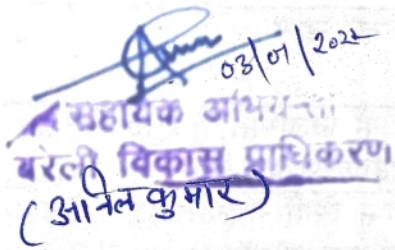 03/01/2022
सहायक अभियन्ता
बरेली विकास प्राधिकरण।
(अनिल कुमार)